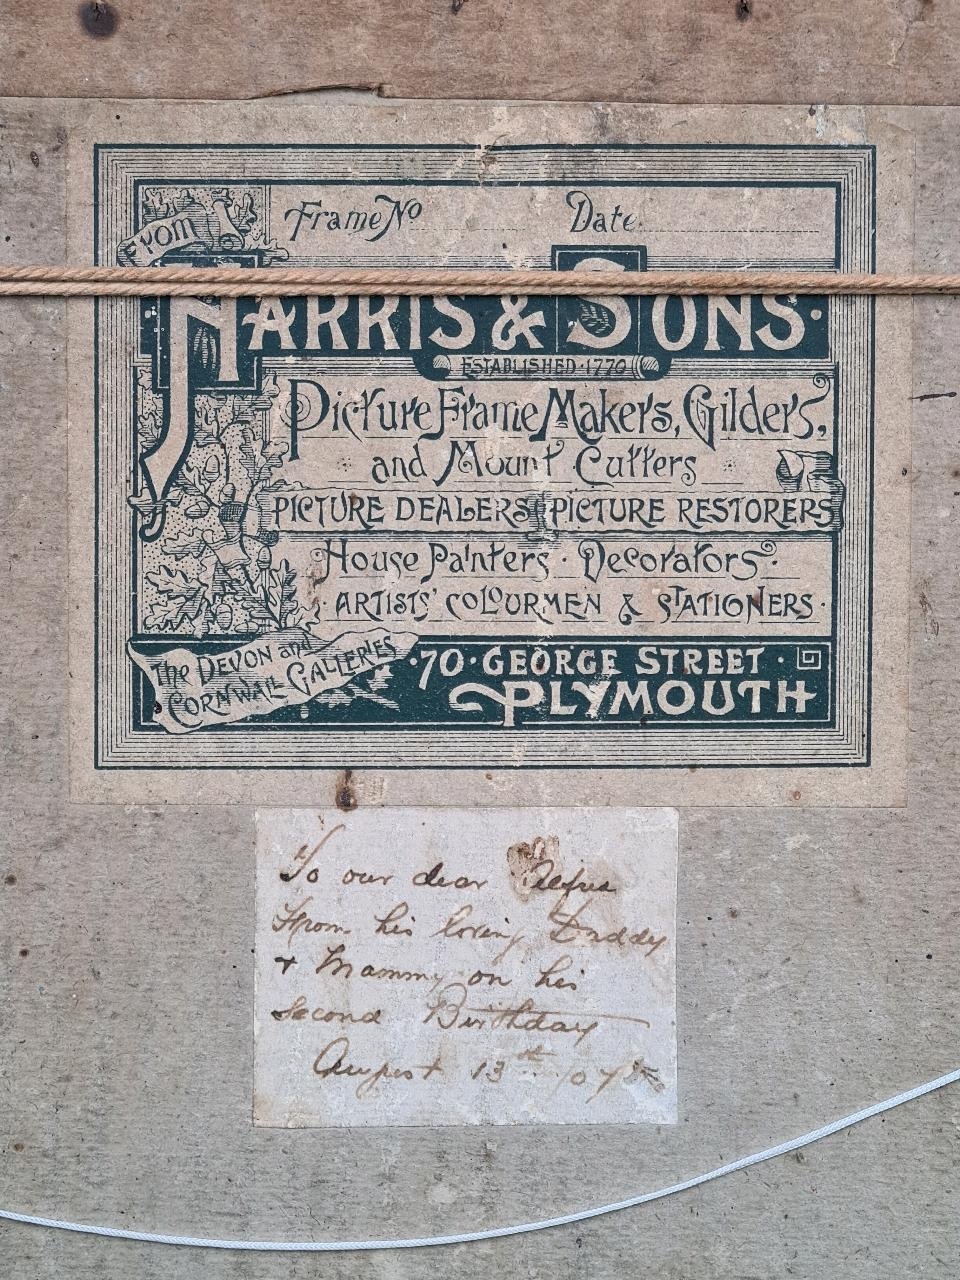 From
Frame No Date
Harris & Sons.
ESTABLISHED · 1770
Picture Frame Makers, Gilders,
and Mount Cutters
PICTURE DEALERS PICTURE RESTORERS
House Painters · Decorators ·
ARTISTS' COLOURMEN & STATIONERS ·
The DEVON and
CORNWALL GALLERIES
· 70 · GEORGE STREET ·
PLYMOUTH
To our dear
From his loving Daddy
+ Mammy on his
Second Birthday
August 13th 07